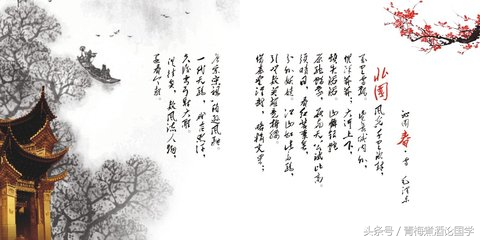 沁园春·雪 毛泽东
北国风光,千里冰封,
万里雪飘。望长城内外,
惟余莽莽;大河上下,
顿失滔滔。山舞银蛇,
原驰蜡象,欲与天公试比高。
须晴日,看红装素裹,
分外妖娆。江山如此多娇,
引无数英雄竞折腰。
惜秦皇汉武,略输文采;
唐宗宋祖,稍逊风骚。
一代天骄,成吉思汗,
只识弯弓射大雕。
俱往矣,数风流人物,
还看今朝。
头条号／青梅煮酒论国学